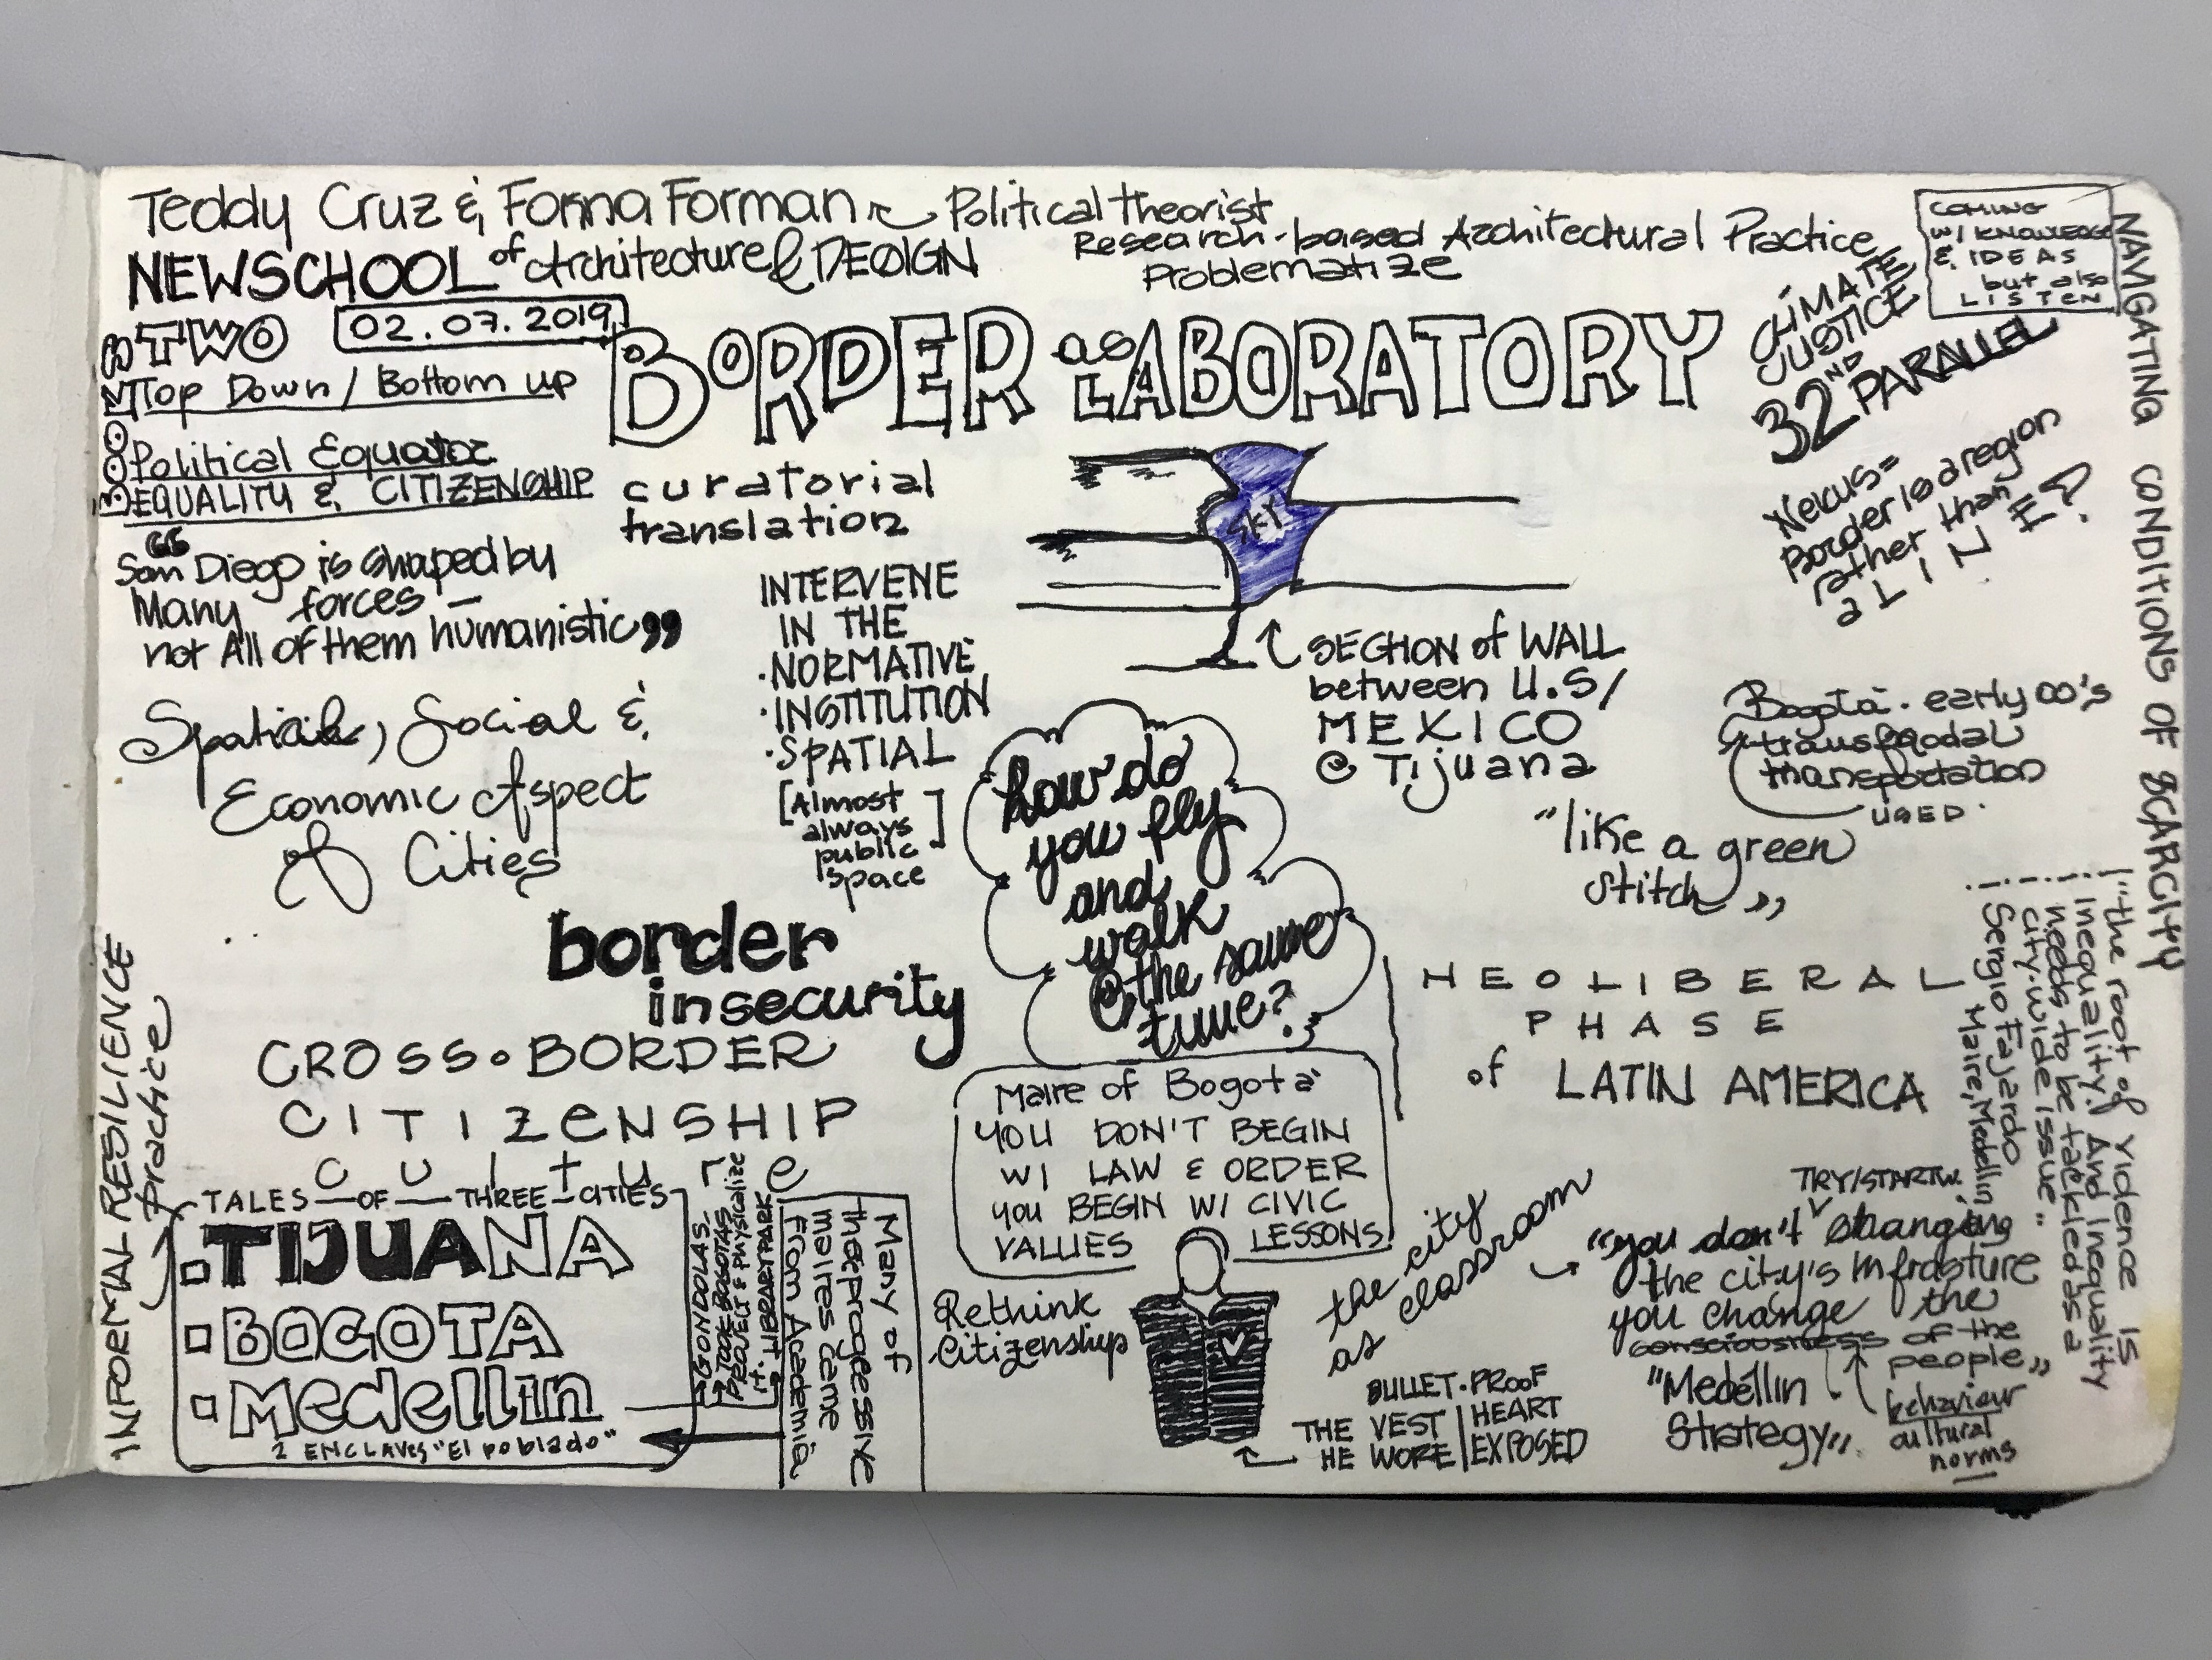 Teddy Cruz & Fonna Forman
Political theorist
Research-based Architectural Practice
Problematize
NEWSCHOOL of Architecture & DESIGN
COMING
W/ KNOWLEDGE
& IDEAS
but also
LISTEN
NAVIGATING CONDITIONS OF SCARCITY
02.07.2019
TWO
BOOKS
Top Down / Bottom up
Political Equator
EQUALITY & CITIZENSHIP
BORDER as LABORATORY
CLIMATE
JUSTICE
32ND PARALLEL
Nexus=
Border is a region
rather than
a LINE?
curatorial
translation
SKY
"San Diego is shaped by
Many forces –
not All of them humanistic"
INTERVENE
IN THE
·NORMATIVE
·INSTITUTION
·SPATIAL
[Almost
always]
public
space
SECTION of WALL
between U.S/
MEXICO
@ Tijuana
"like a green
stitch"
Bogotà. early 00's
transportation
USED.
Spatial, Social &
Economic Aspect
of Cities
how do
you fly
and
walk
@ the same
time?
border
insecurity
CROSS-BORDER
CITIZENSHIP
culture
NEOLIBERAL
PHASE
of LATIN AMERICA
"the root of vidence is
inequality. And Inequality
needs to be tackled as a
city wide issue"
Sergio Fajardo
Maire, Medellin
INFORMAL RESILIENCE
practice
TALES OF THREE CITIES
TIJUANA
BOGOTA
Medellin
2 ENCLAVES "El poblado"
GONDOLAS
& Physicalize
it.
LIBRARY PARK
Many of
the progressive
maires came
From Academia
Maire of Bogotà
YOU DON'T BEGIN
W/ LAW & ORDER
you BEGIN W/ CIVIC
VALUES LESSONS
Rethink
Citizenship
the city
as classroom
BULLET-PROOF
THE VEST HEART
HE WORE EXPOSED
TRY/START W.
"you don't changing
the city's Infrasture
you change the
consciousness of the
people"
behaviour
cultural
norms
"Medéllin
Strategy"